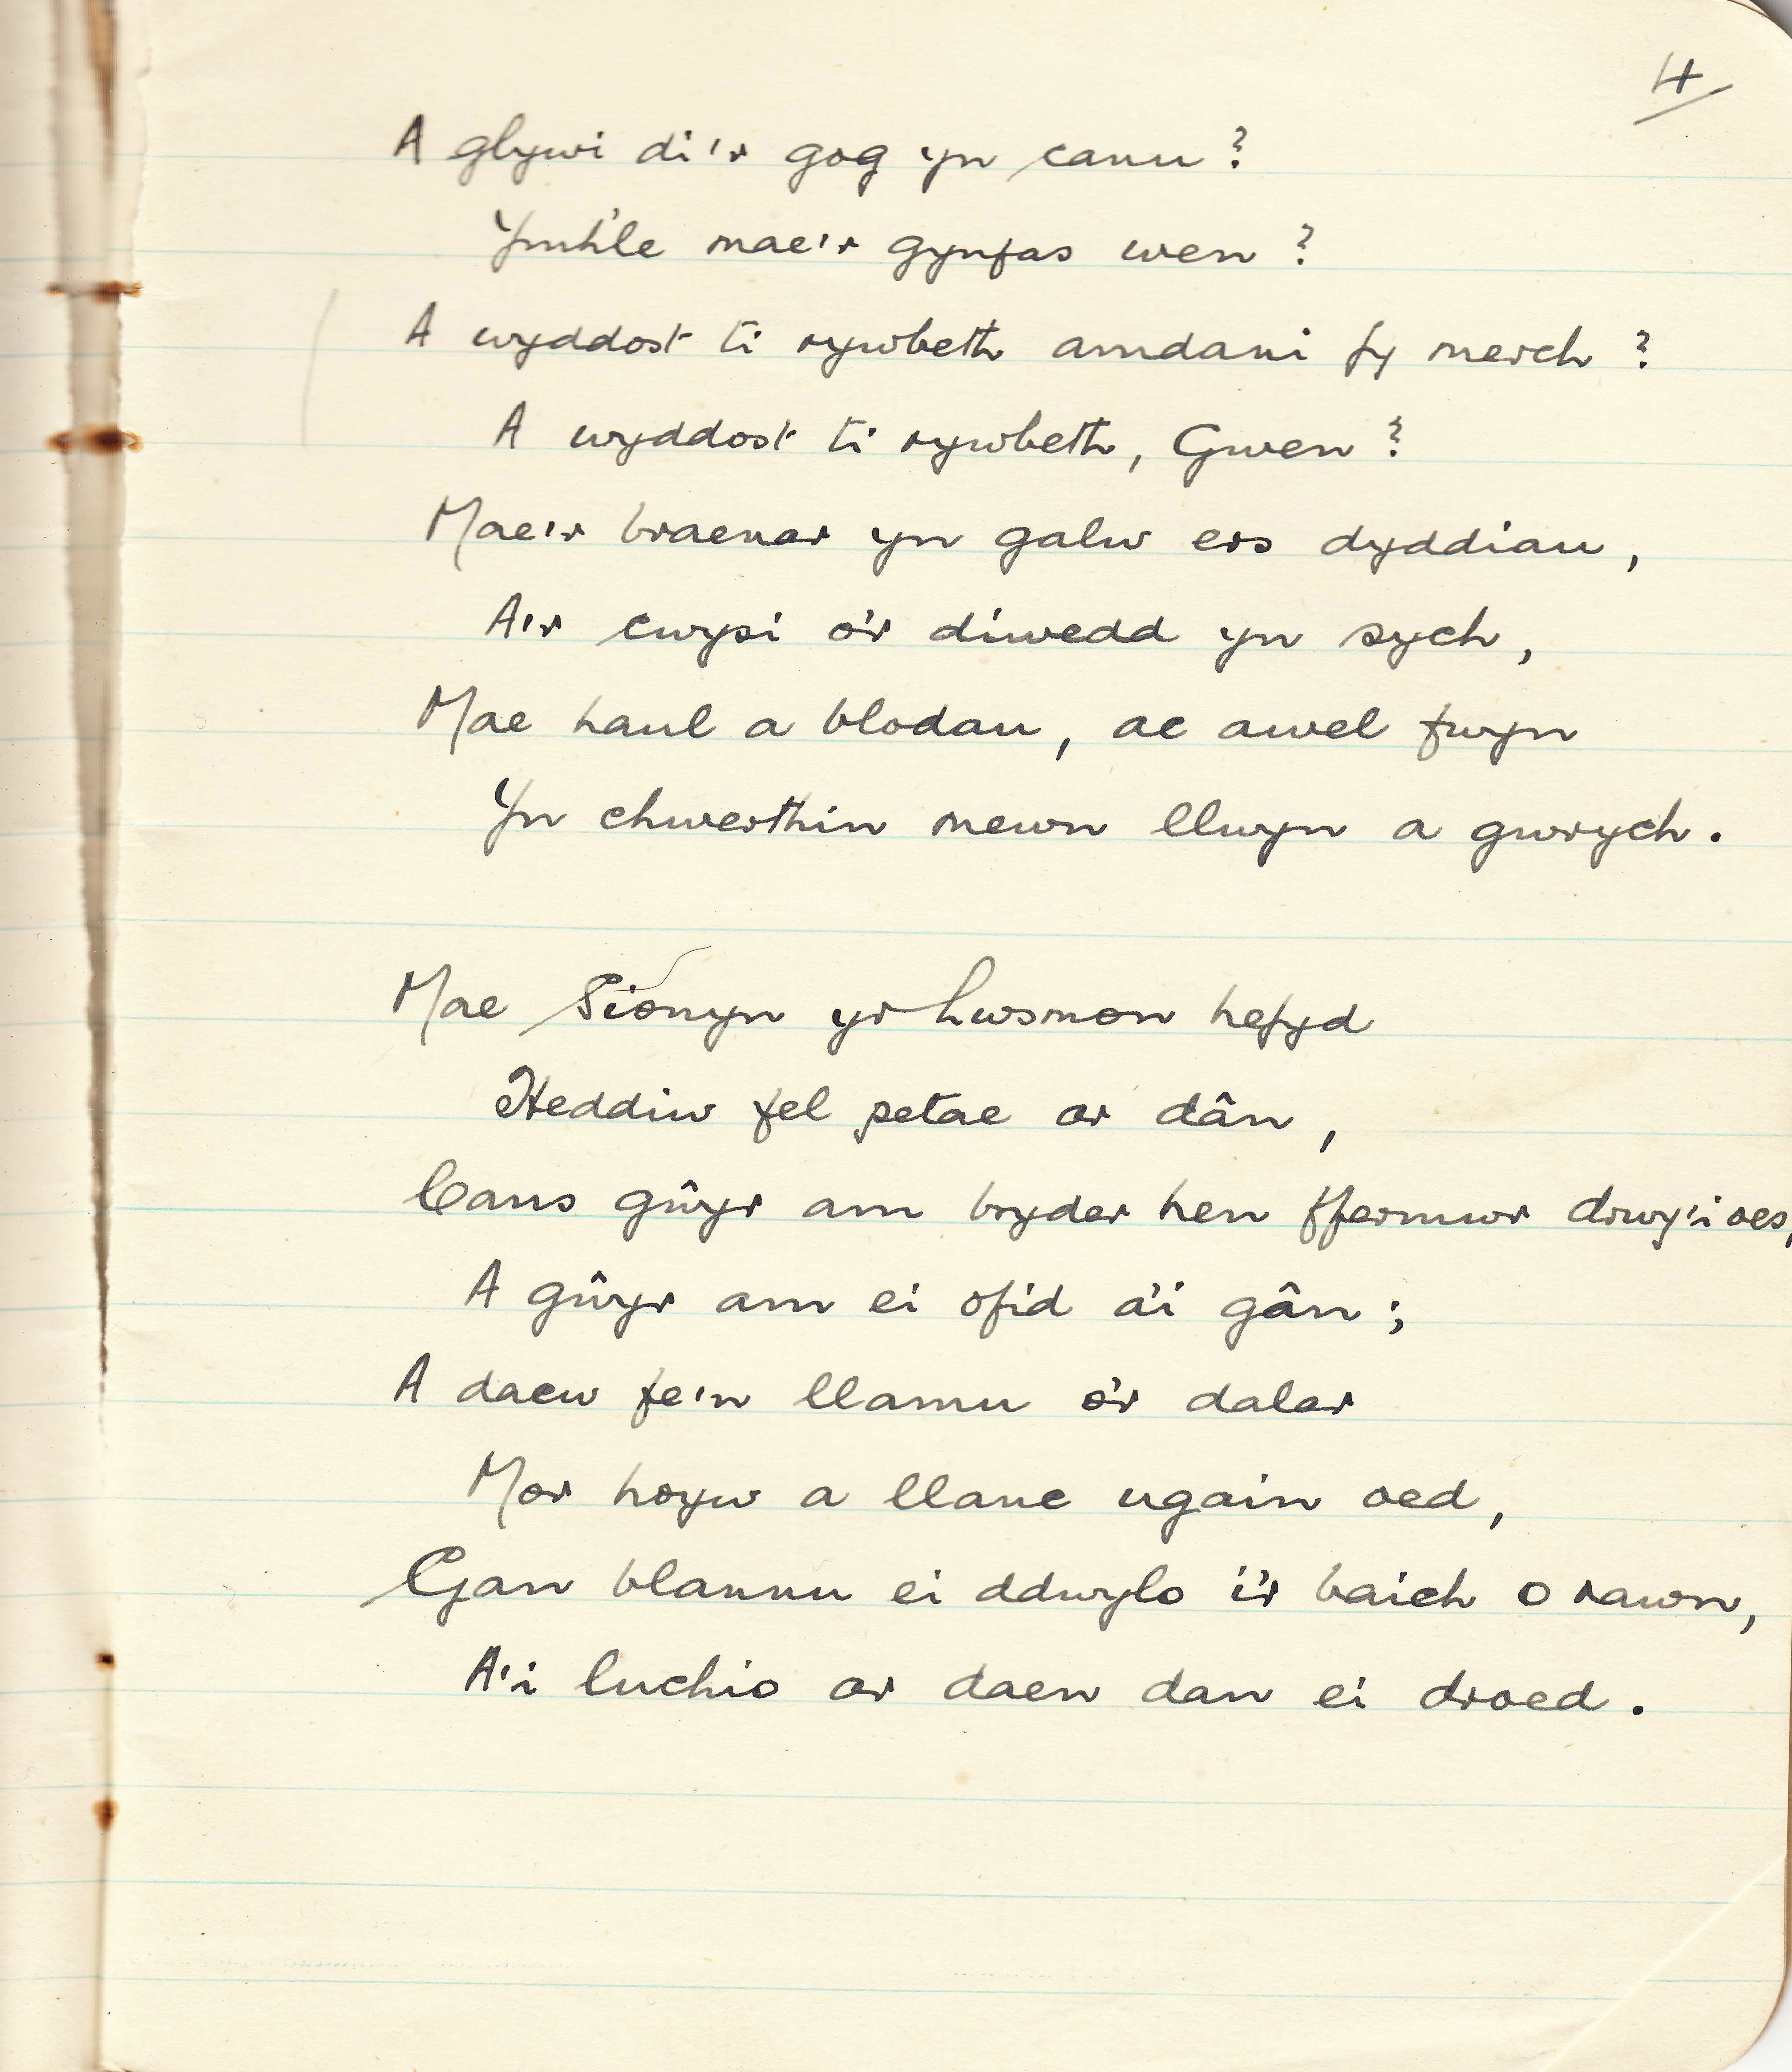 4
A glywi di'r gog yn canu?
Ymh'le mae'r gynfas wen?
A wyddost ti rywbeth amdani fy merch?
A wyddost ti rywbeth, Gwen?
Mae'r braenar yn galw ers dyddiau,
A'r cwysi o'r diwedd yn sych,
Mae haul a blodau, ac awel fwyn
Yn chwerthin mewn llwyn a gwrych.
Mae Sionyn yr hwsmon hefyd
Heddiw fel petae ar dân,
Cans gŵyr am bryder hen ffermwr drwy'i oes,
A gŵyr am ei ofid a'i gân;
A daew fe'n llamu o'r dalar
Mor hoyw a llanc ugain oed,
Gan blannu ei ddwylo i'r baich o rawn,
A'i luchio ar daen dan ei droed.